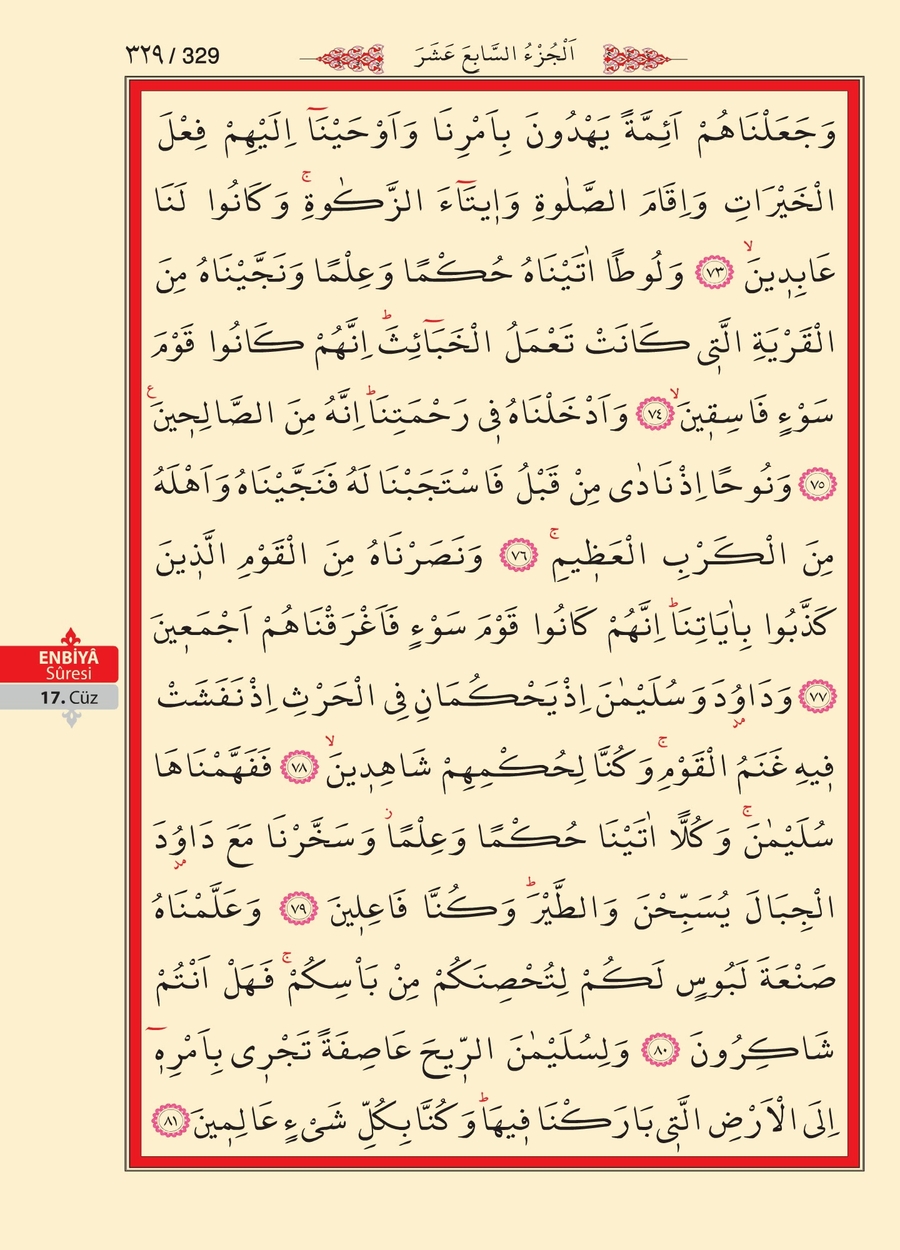 ٣٢٩ / 329
اَلْجُزْءُ السَّابِعَ عَشَرَ
وَجَعَلْنَاهُمْ اَئِمَّةً يَهْدُونَ بِاَمْرِنَا وَاَوْحَيْنَٓا اِلَيْهِمْ فِعْلَ
الْخَيْرَاتِ وَاِقَامَ الصَّلٰوةِ وَا۪يتَٓاءَ الزَّكٰوةِۚ وَكَانُوا لَنَا
عَابِد۪ينَۙ ﴿٧٣﴾ وَلُوطًا اٰتَيْنَاهُ حُكْمًا وَعِلْمًا وَنَجَّيْنَاهُ مِنَ
الْقَرْيَةِ الَّت۪ى كَانَتْ تَعْمَلُ الْخَبَٓائِثَۜ اِنَّهُمْ كَانُوا قَوْمَ
سَوْءٍ فَاسِق۪ينَۙ ﴿٧٤﴾ وَاَدْخَلْنَاهُ ف۪ى رَحْمَتِنَاۜ اِنَّهُ مِنَ الصَّالِح۪ينَ ع
﴿٧٥﴾ وَنُوحًا اِذْ نَادٰى مِنْ قَبْلُ فَاسْتَجَبْنَا لَهُ فَنَجَّيْنَاهُ وَاَهْلَهُ
مِنَ الْكَرْبِ الْعَظ۪يمِۚ ﴿٧٦﴾ وَنَصَرْنَاهُ مِنَ الْقَوْمِ الَّذ۪ينَ
كَذَّبُوا بِاٰيَاتِنَاۜ اِنَّهُمْ كَانُوا قَوْمَ سَوْءٍ فَاَغْرَقْنَاهُمْ اَجْمَع۪ينَ
﴿٧٧﴾ وَدَاوُ۫دَ وَسُلَيْمٰنَ اِذْ يَحْكُمَانِ فِى الْحَرْثِ اِذْ نَفَشَتْ
ف۪يهِ غَنَمُ الْقَوْمِۚ وَكُنَّا لِحُكْمِهِمْ شَاهِد۪ينَۙ ﴿٧٨﴾ فَفَهَّمْنَاهَا
سُلَيْمٰنَۚ وَكُلًّا اٰتَيْنَا حُكْمًا وَعِلْمًاۘ وَسَخَّرْنَا مَعَ دَاوُ۫دَ
الْجِبَالَ يُسَبِّحْنَ وَالطَّيْرَۜ وَكُنَّا فَاعِل۪ينَ ﴿٧٩﴾ وَعَلَّمْنَاهُ
صَنْعَةَ لَبُوسٍ لَكُمْ لِتُحْصِنَكُمْ مِنْ بَاْسِكُمْۚ فَهَلْ اَنْتُمْ
شَاكِرُونَ ﴿٨٠﴾ وَلِسُلَيْمٰنَ الرّ۪يحَ عَاصِفَةً تَجْر۪ى بِاَمْرِه۪ٓ
اِلَى الْاَرْضِ الَّت۪ى بَارَكْنَا ف۪يهَاۜ وَكُنَّا بِكُلِّ شَىْءٍ عَالِم۪ينَ ﴿٨١﴾
ENBİYÂ
Sûresi
17. Cüz